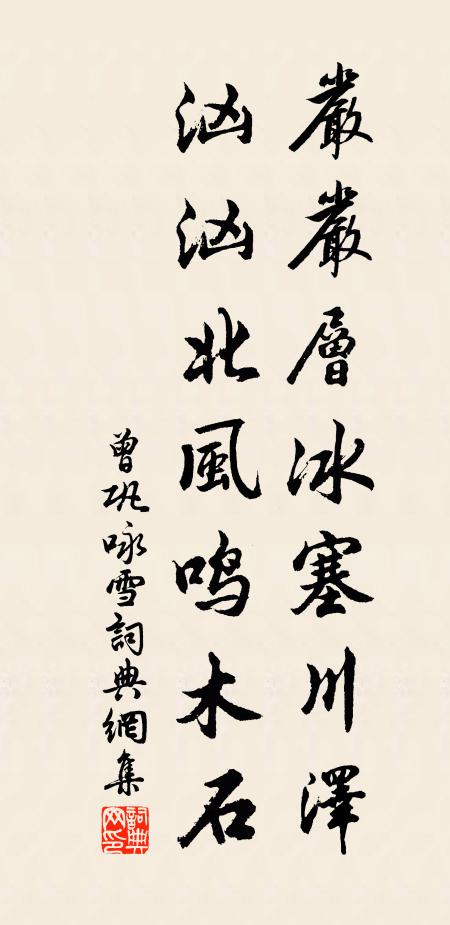 嚴嚴層冰塞川澤
汹汹北風鸣木石
曾巩咏雪詞典網集
詞典网印